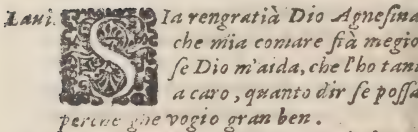 Lavi. SIa rengratià Dio Agnesina
che mia comare stà megio
se Dio m'aida, che l'ho tant
a caro, quanto dir se possa
perche ghe vogio gran ben.